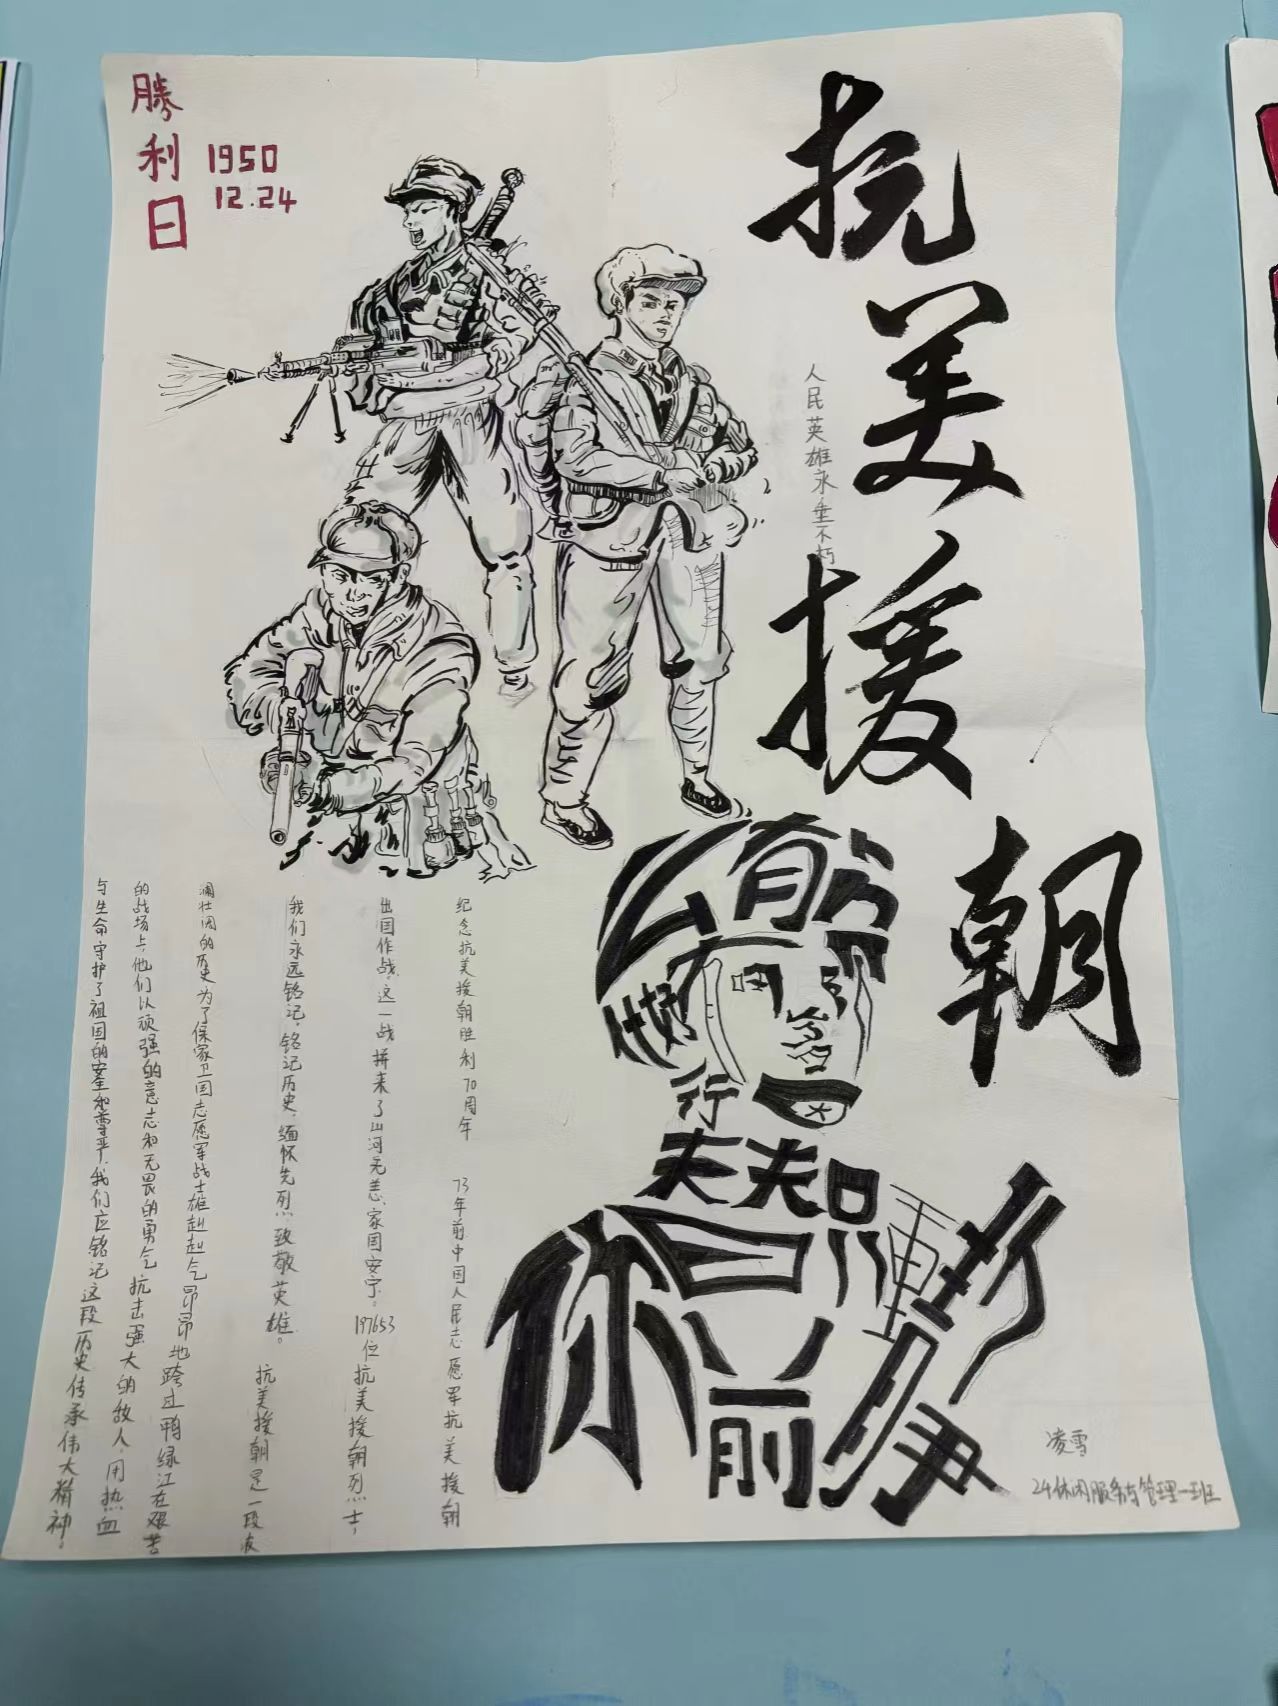 抗美援朝
人民英雄永垂不朽
勝利日
1950
12.24
纪念抗美援朝胜利70周年 73年前中国人民志愿军抗美援朝
出国作战,这一战拼来了山河无恙、家国安宁。197653位抗美援朝烈士,
我们永远铭记,铭记历史,缅怀先烈,致敬英雄。 抗美援朝是一段波
澜壮阔的历史为了保家卫国志愿军战士雄赳赳气昂昂地跨过鸭绿江在艰苦
的战场上,他们以顽强的意志和无畏的勇气抗击强大的敌人,用热血
与生命守护了祖国的安全和尊严,我们应铭记这段历史传承伟大精神。
有
行
你
前
凌雪
24休闲服务与管理一班